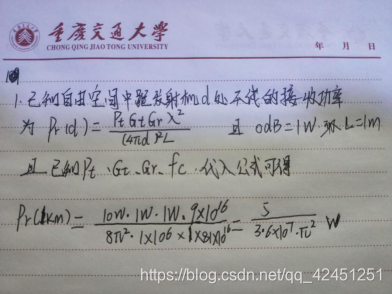 重庆交通大学
CHONG QING JIAO TONG UNIVERSITY
年 月 日
1. 已知自由空间中距发射机d处天线的接收功率
为 Pr(d) = PtGtGrλ² / (4πd)²L 且 0dB=1W. L=1m
且已知Pt、Gt、Gr、fc. 代入公式可得
Pr(1km) = 10W·1W·1W·9×10^16 / 8π²·1×10^6×1×81×10^16 = 5 / 3.6×10^7·π² W
https://blog.csdn.net/qq_42451251